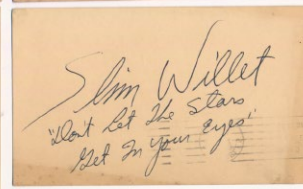 Slim Willet
"Don't Let The Stars
Get In Your Eyes"